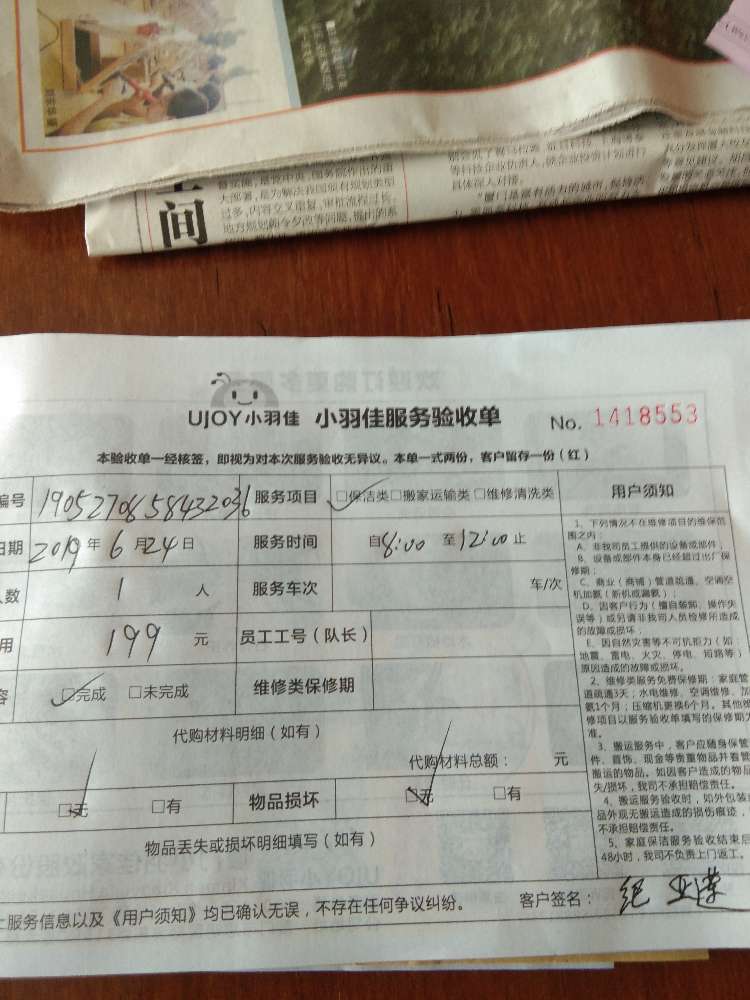 间
大部署，是为解决我国原有规划类型
过多，内容交叉重复，审批流程过长，
地方规划朝令夕改等问题，提出的系
具体深入对接。
UJOY小羽佳 小羽佳服务验收单 No. 1418553
本验收单一经核签，即视为对本次服务验收无异议。本单一式两份，客户留存一份（红）
编号 1905270658432036 服务项目 □保洁类□搬家运输类□维修清洗类 用户须知
日期 2019年6月24日 服务时间 自8:00至12:00止
人数 1 人 服务车次 车/次
用 199 元 员工工号（队长）
容 □完成 □未完成 维修类保修期
代购材料明细（如有）
代购材料总额： 元
□无 □有 物品损坏 □无 □有
物品丢失或损坏明细填写（如有）
上服务信息以及《用户须知》均已确认无误，不存在任何争议纠纷。 客户签名：纪亚
1、下列情况不在维修项目的维保范
围之内：
A、非我司员工提供的设备或部件；
B、设备或部件本身已经超过出厂保
修期；
C、商业（商铺）管道疏通、空调空
机加氨（新机或漏氨）；
D、因客户行为（擅自装卸、操作失
误等）或另请非我司人员检修所造成
的故障或损坏；
E、因自然灾害等不可抗拒力（如：
地震、雷电、火灾、停电、短路等）
原因造成的故障或损坏。
2、维修类服务免费保修期：家庭管
道疏通3天；水电维修、空调维修、加
氨1个月；压缩机更换6个月。其他维
修项目以服务验收单填写的保修期为
准。
3、搬运服务中，客户应随身保管
件、首饰、现金等贵重物品并看管
搬运的物品。如因客户造成的物品
失/损坏，我司不承担赔偿责任。
4、搬运服务验收时，如外包装
品外观无搬运造成的损伤痕迹，
不承担赔偿责任。
5、家庭保洁服务验收结束后
48小时，我司不负责上门返工。